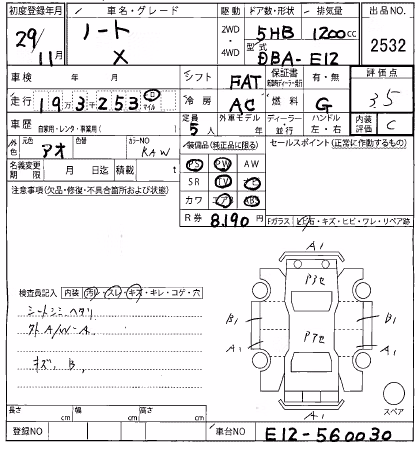 初度登録年月 車名・グレード 駆動 ドア数・形状 排気量 出品NO
29/11月 ノート X 2WD・4WD 5HB 1200cc 2532
型式 DBA-E12
車検 年 月 シフト FAT 保証書 有・無 評価点
走行 19万3千253 マイル 冷房 AC 燃料 G 3.5
車歴 自家用・レンタ・事業用( ) 定員 5人 外車モデル ディーラー・並行 ハンドル 左・右 内装評価 C
外色 元色 アオ 色替 カラーNO RAW 装備品(純正品に限る) セールスポイント(正常に作動するもの)
名義変更期限 月 日迄 積載 t PS PW AW
注意事項(欠品・修復・不具合箇所および状態) SR TV ナビ
カワ エアB ABS
R券 8,190円 Fガラス 飛石・キズ・ヒビ・ワレ・リペア跡
A1
P3セ
検査員記入 内装 汚レ・スレ・キズ・キレ・コゲ・穴
シートシミヘタリ B1 B1
外A/W-A P7セ
A1 A1
キズ、B1
スペア
長さ cm 幅 cm 高さ cm A1
登録NO 車台NO E12-560030